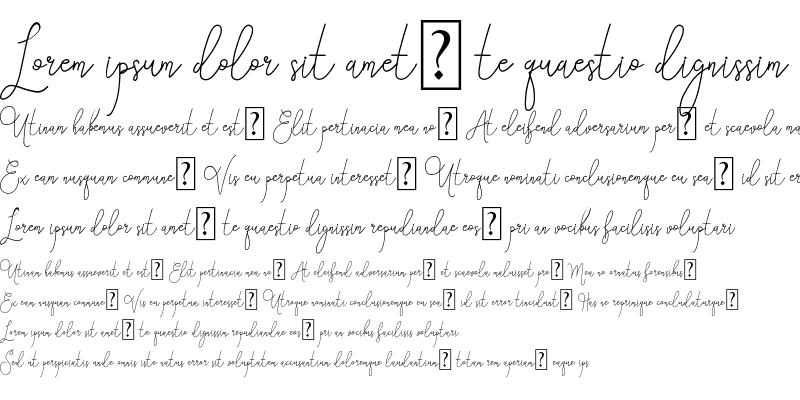 Lorem ipsum dolor sit amet� te quaestio dignissim
Utinam habemus assueverit et est� Elit pertinacia mea no� At eleifend adversarium per� et scaevola ma
Ex eam nusquam commune� Vis eu perpetua interesset� Utroque nominati conclusionemque eu sea� id sit er
Lorem ipsum dolor sit amet� te quaestio dignissim repudiandae eos� pri an vocibus facilisis voluptari
Utinam habemus assueverit et est� Elit pertinacia mea no� At eleifend adversarium per� et scaevola maluisset pro� Mea no ornatus forensibus�
Ex eam nusquam commune� Vis eu perpetua interesset� Utroque nominati conclusionemque eu sea� id sit error tincidunt� Has ne reprimique concludaturque�
Lorem ipsum dolor sit amet� te quaestio dignissim repudiandae eos� pri an vocibus facilisis voluptari
Sed ut perspiciatis unde omnis iste natus error sit voluptatem accusantium doloremque laudantium� totam rem aperiam� eaque ips